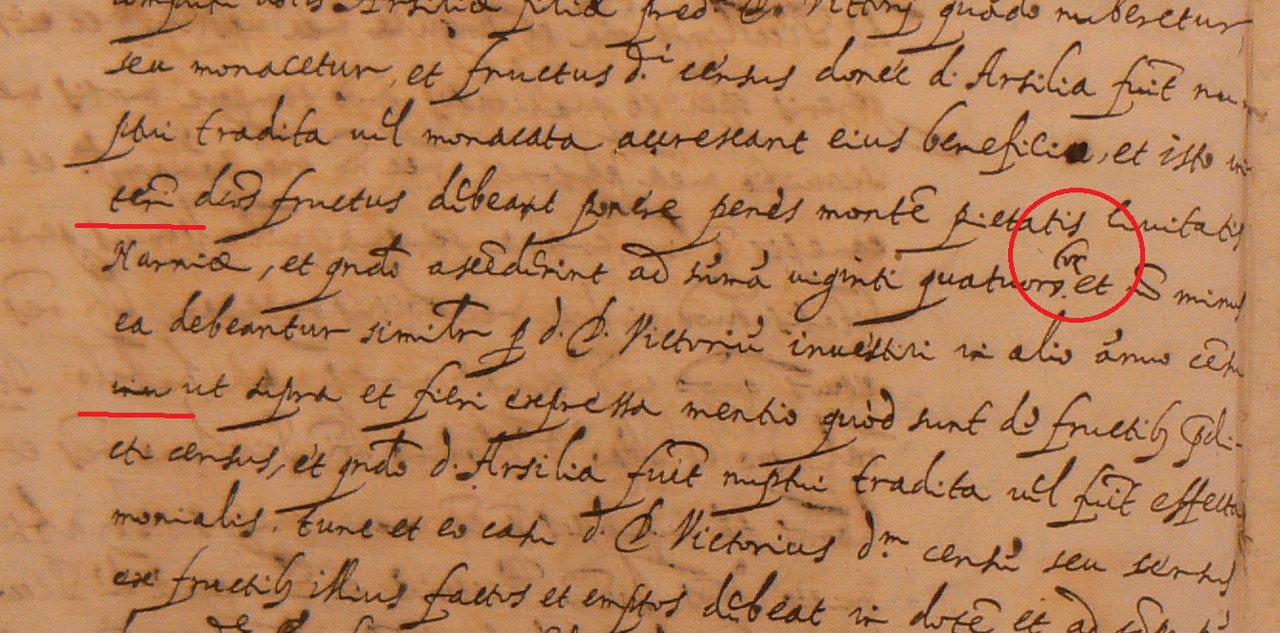 Arsiliæ filiæ pred. D. Victorij quādo nuberetur
seu monacetur, et fructus d.i census donéc d. Arsilia fuīt nu
ptui tradita uĺ monacata accrescant eius beneficio, et isto in
terī dōs fructus débeant ponere penès montē pietatis Ciuitatis
Narniæ, et qndō ascēdérint ad sūmā uiginti quatuor sc. et nō minus
ea debeantur similr p d. D. Victoriū inuestiri in alio ānuo cēsu
ut supra et fieri expressa mentio quòd sunt dé fructib. pdi-
cti census, et qndō d. Arsilia fuīt nuptui tradita uĺ fuīt effecta
monialis, tunc et eo casu d. D. Victorius d.m censū seu census
ex fructib. illius factos et emptos débeat in dotē et ad